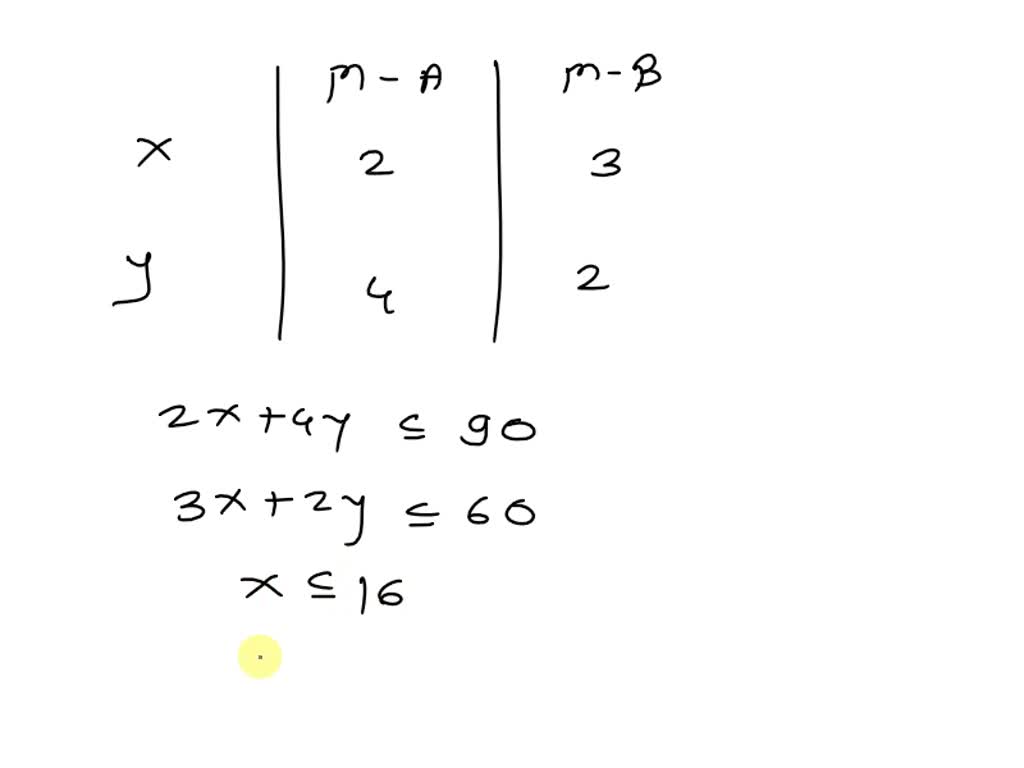 M-A M-B
x 2 3
y 4 2
2x+4y ≤ 90
3x+2y ≤ 60
x ≤ 16